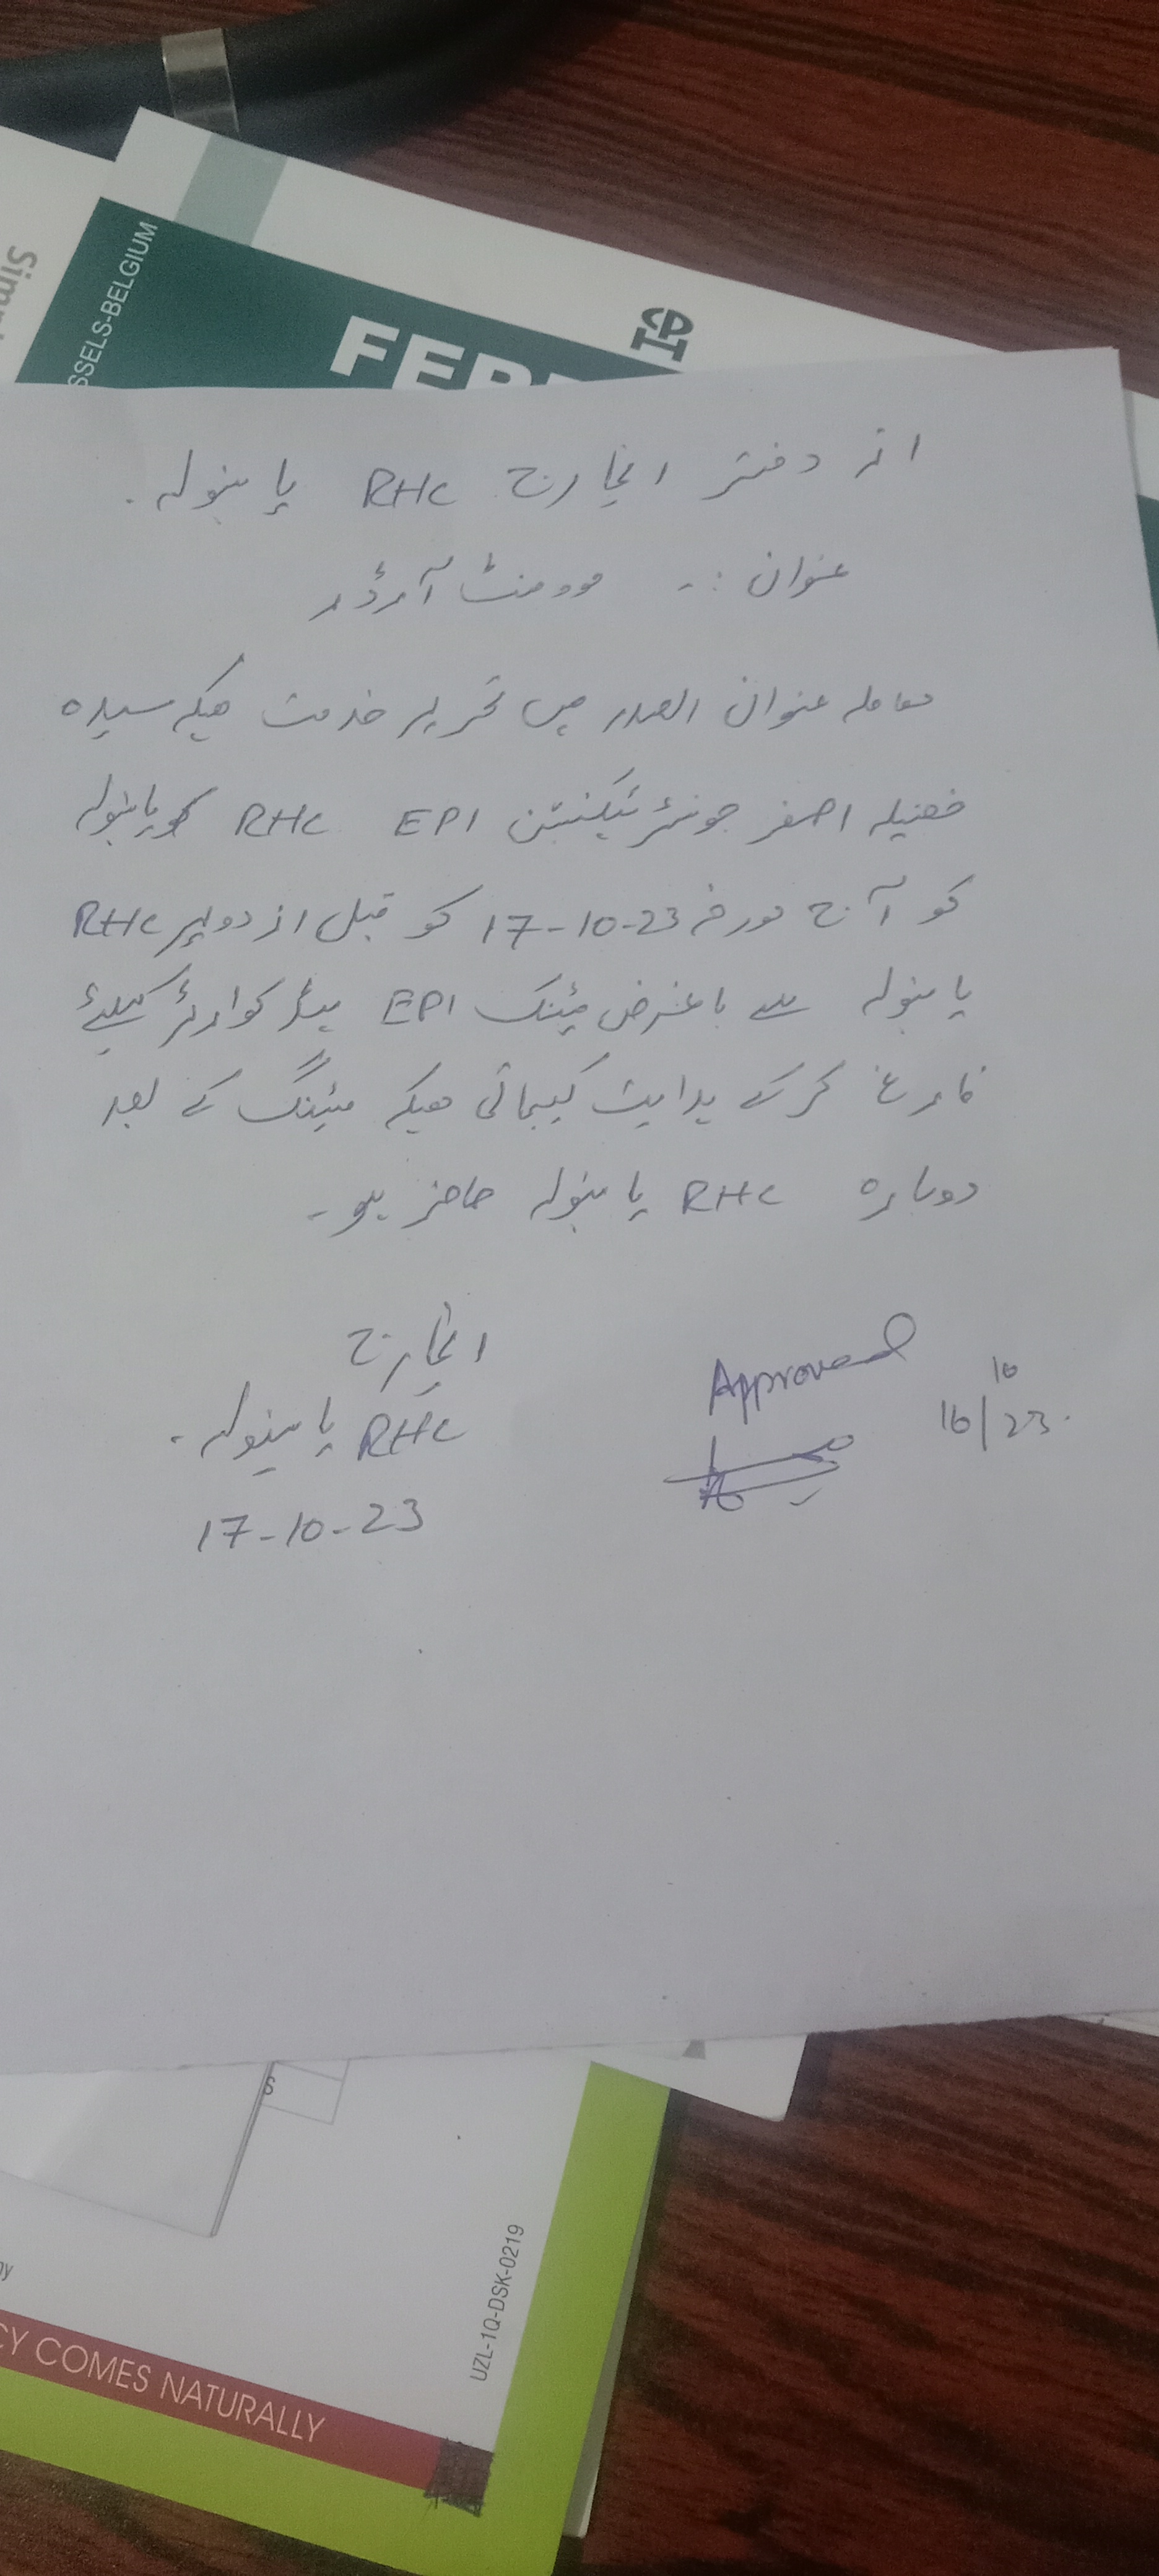 SSELS-BELGIUM
FER
از دفتر انچارج RHC پا ہنولہ ۔
عنوان :۔ موومنٹ آرڈر
معاملہ عنوان الصدر میں تحریر خدمت ھیکہ سیدہ
فضیلہ اصغر جونئر ٹیکنیشن EPI RHC پاہنولہ
کو آج مورخہ 17-10-23 کو قبل از دوپہر RHC
پا ہنولہ سے باغرض میٹنگ EPI ہیڈ کوارٹر کیلئے
فارغ کر کے ہدایت کیجاتی ھیکہ میٹنگ کے بعد
دوبارہ RHC پا ہنولہ حاضر ہو ۔
انچارج
RHC پا ہنولہ ۔
17-10-23
Approved
16/10/23.
UZL-1Q-DSK-0219
CY COMES NATURALLY